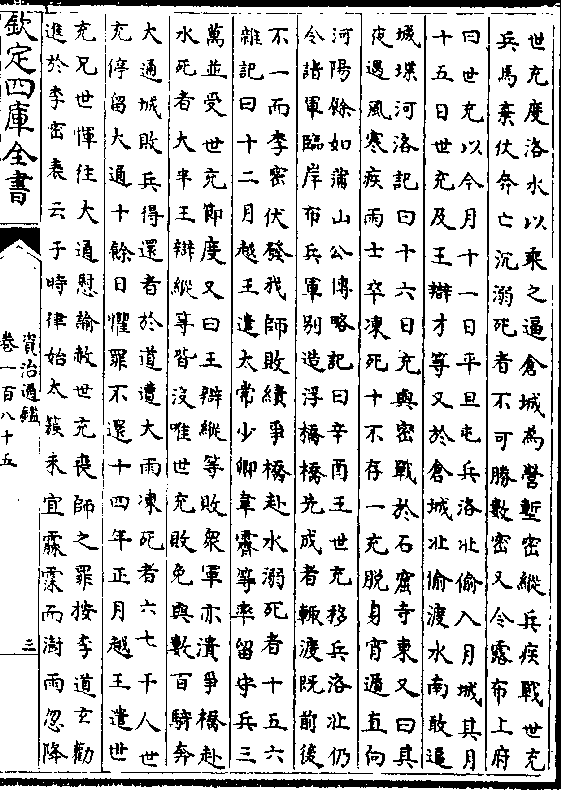 世充度洛水以乘之逼倉城為營塹密縱兵疾戰世充
兵馬棄仗奔亡沉溺死者不可勝數密又令露布上府
曰世充以今月十一日平旦屯兵洛北偷入月城其月
十五日世充及王辯才等又於倉城北偷渡水南敢逼
城堞河洛記曰十六日充與密戰於石窟寺東又曰其
夜遇風寒疾雨士卒凍死十不存一充脫身宵遁直向
河陽餘如蒲山公傳略記曰辛酉王世充移兵洛北仍
令諸軍臨岸布兵軍别造浮橋橋先成者輙渡既前後
不一而李密伏發我師敗績爭橋赴水溺死者十五六
雜記曰十二月越王遣太常少卿韋霽等率留守兵三
萬並受世充節度又曰王辯縱等敗衆軍亦潰爭橋赴
水死者大半王辯縱等皆沒唯世充敗免與數百騎奔
大通城敗兵得還者於道遭大雨凍死者六七千人世
充停留大通十餘日懼罪不還十四年正月越王遣世
充兄世惲往大通慰諭赦世充喪師之罪按李道玄勸
進於李密表云于時律始太蔟未宜霖霪而澍雨忽降
欽定四庫全書
資治通鑑
卷一百八十五
三